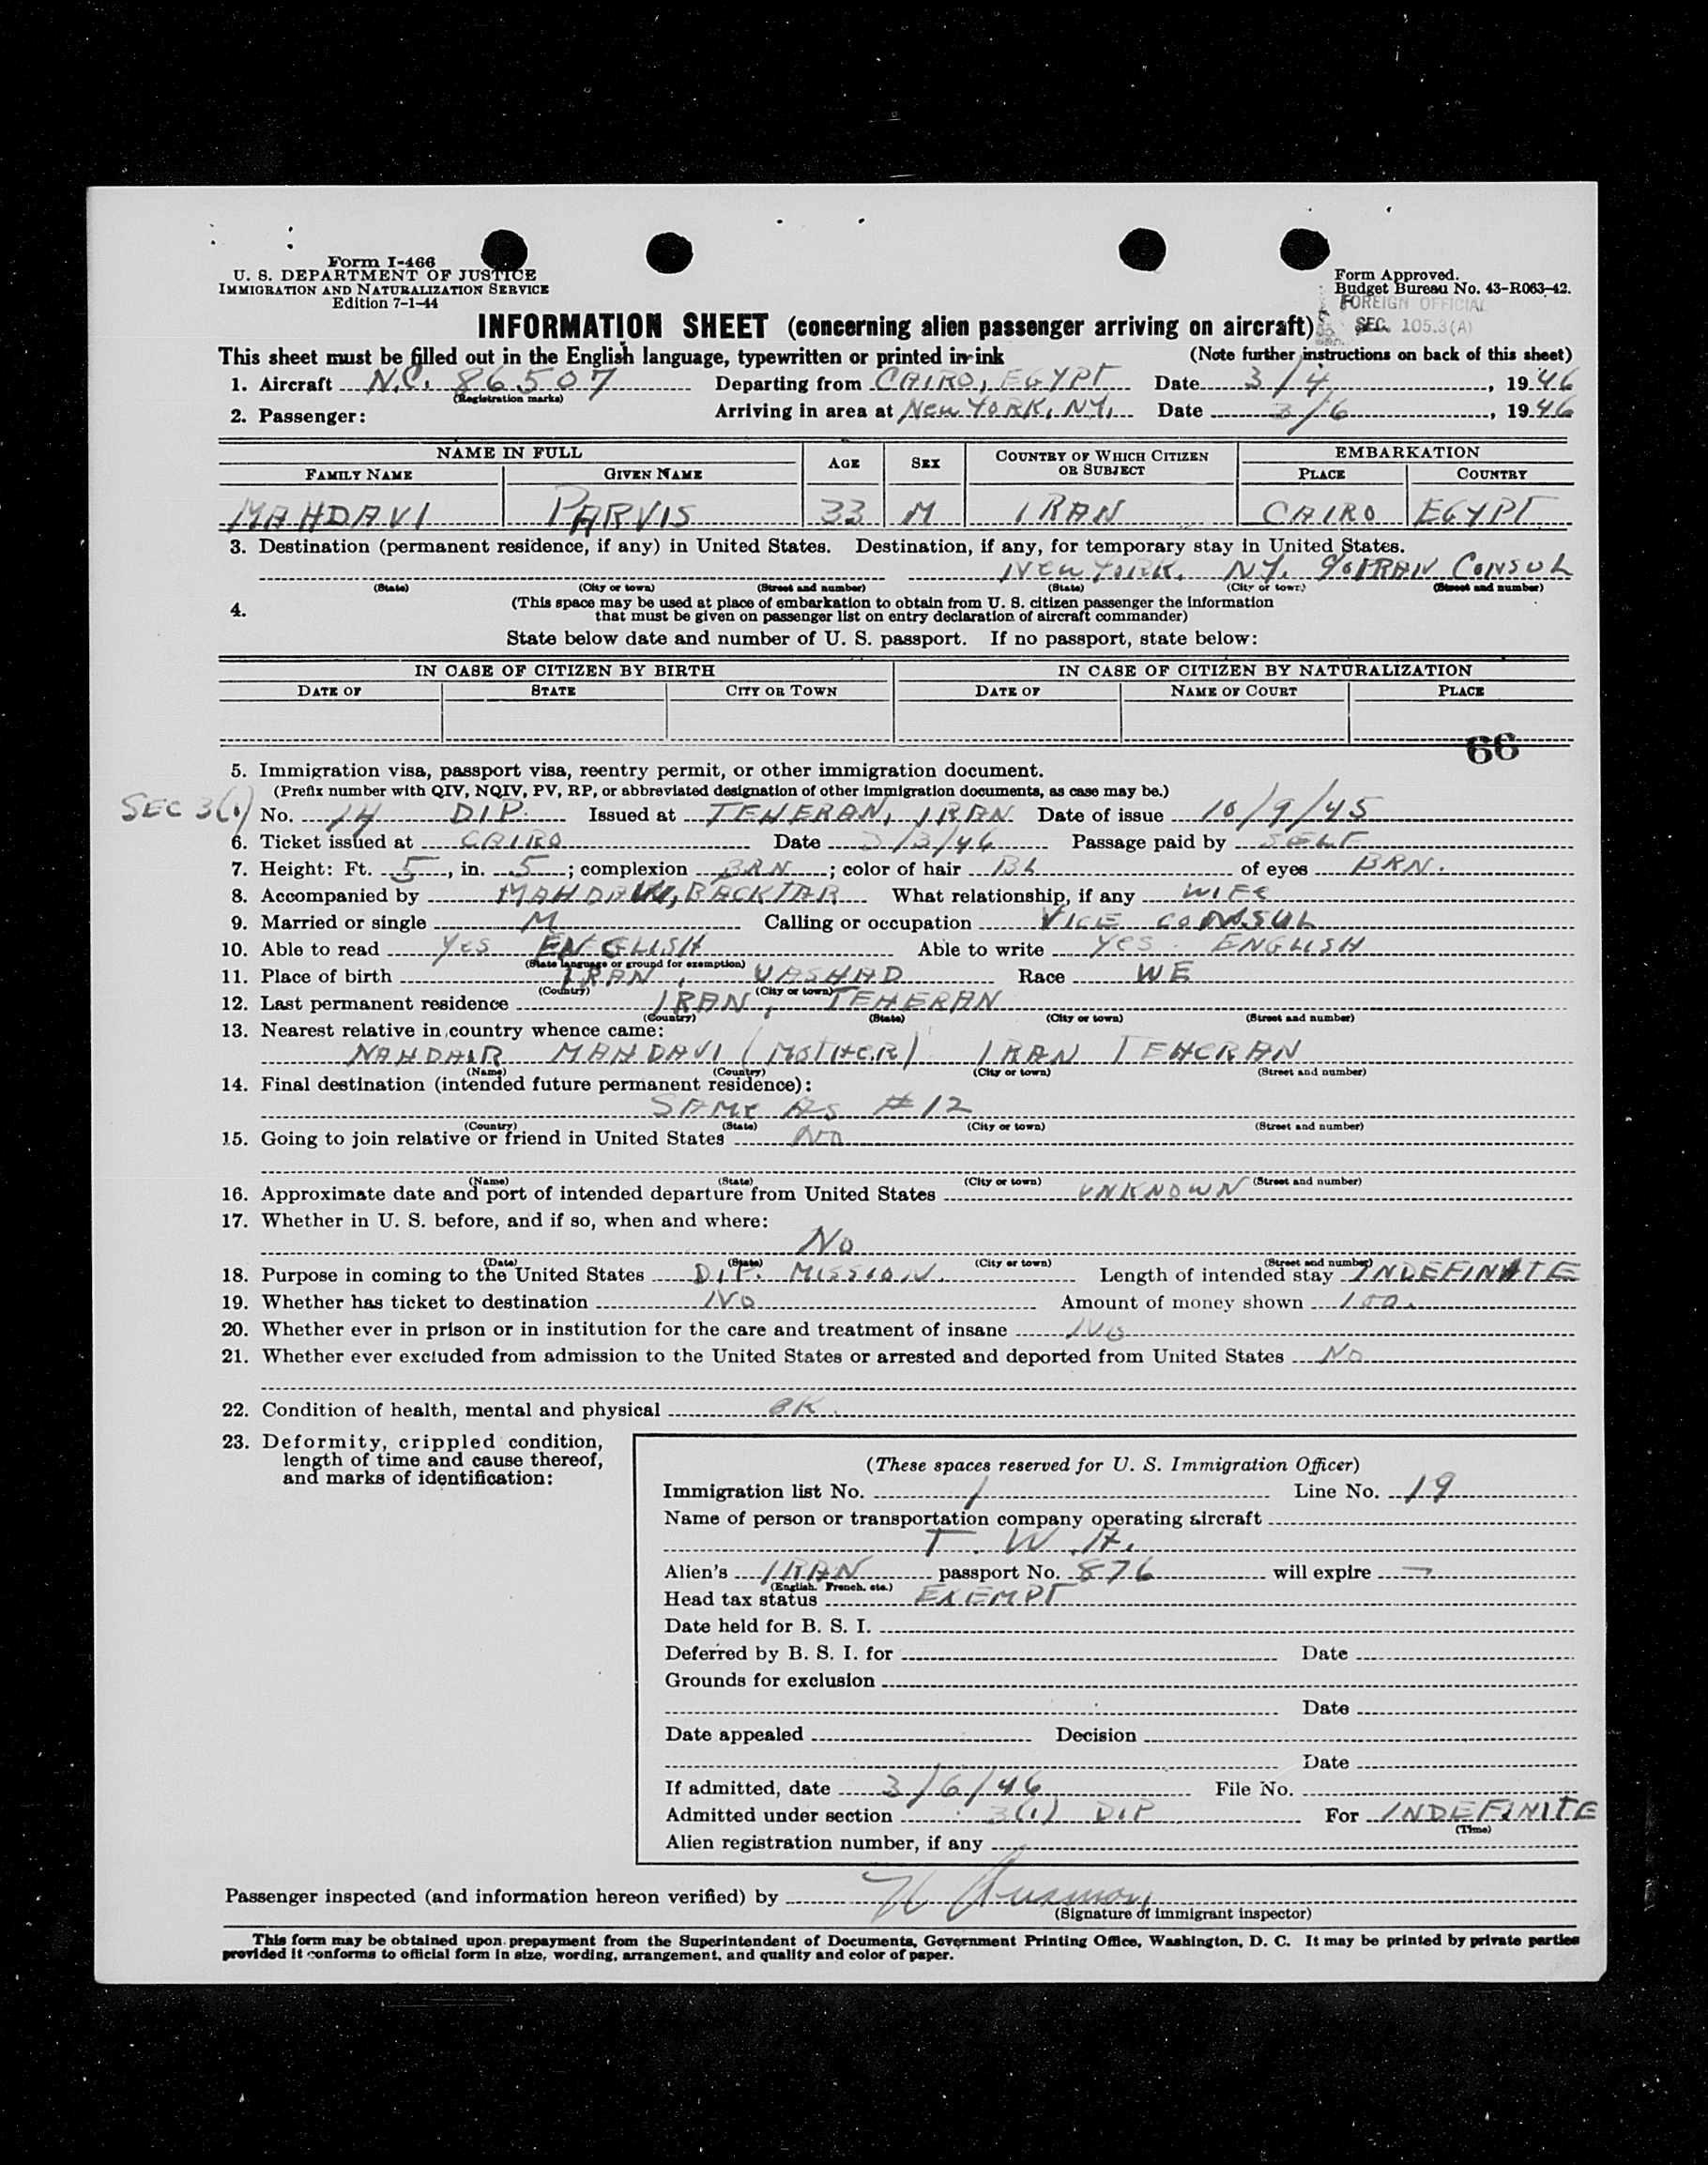 Form I-466
U. S. DEPARTMENT OF JUSTICE
IMMIGRATION AND NATURALIZATION SERVICE
Edition 7-1-44
Form Approved.
Budget Bureau No. 43-R063-42.
FOREIGN OFFICIAL
SEC. 105.3(A)
INFORMATION SHEET (concerning alien passenger arriving on aircraft)
This sheet must be filled out in the English language, typewritten or printed in ink (Note further instructions on back of this sheet)
1. Aircraft N.C. 86507 Departing from CAIRO, EGYPT Date 3/4, 1946
(Registration marks)
2. Passenger: Arriving in area at New YORK, N.Y. Date 3/6, 1946
NAME IN FULL AGE SEX COUNTRY OF WHICH CITIZEN OR SUBJECT EMBARKATION
FAMILY NAME GIVEN NAME PLACE COUNTRY
MAHDAVI PARVIS 33 M IRAN CAIRO EGYPT
3. Destination (permanent residence, if any) in United States. Destination, if any, for temporary stay in United States.
New YORK. NY. c/o IRAN CONSUL
(State) (City or town) (Street and number) (State) (City or town) (Street and number)
4. (This space may be used at place of embarkation to obtain from U. S. citizen passenger the information
that must be given on passenger list on entry declaration of aircraft commander)
State below date and number of U. S. passport. If no passport, state below:
IN CASE OF CITIZEN BY BIRTH IN CASE OF CITIZEN BY NATURALIZATION
DATE OF STATE CITY OR TOWN DATE OF NAME OF COURT PLACE
66
5. Immigration visa, passport visa, reentry permit, or other immigration document.
(Prefix number with QIV, NQIV, PV, RP, or abbreviated designation of other immigration documents, as case may be.)
SEC 3(1) No. 14 DIP. Issued at TEHERAN, IRAN Date of issue 10/9/45
6. Ticket issued at CAIRO Date 3/3/46 Passage paid by SELF
7. Height: Ft. 5, in. 5; complexion BRN; color of hair BL of eyes BRN.
8. Accompanied by MAHDAVI, BACKTAR What relationship, if any WIFE
9. Married or single M Calling or occupation VICE CONSUL
10. Able to read Yes ENGLISH Able to write Yes. ENGLISH
(State language or ground for exemption)
11. Place of birth IRAN, UASHAD Race WE
(Country) (City or town)
12. Last permanent residence IRAN, TEHERAN
(Country) (State) (City or town) (Street and number)
13. Nearest relative in country whence came:
NAHDAIR MAHDAVI (MOTHER) IRAN TEHERAN
(Name) (Country) (City or town) (Street and number)
14. Final destination (intended future permanent residence):
SAME AS #12
(Country) (State) (City or town) (Street and number)
15. Going to join relative or friend in United States No
(Name) (State) (City or town) (Street and number)
16. Approximate date and port of intended departure from United States UNKNOWN
17. Whether in U. S. before, and if so, when and where:
No
(Date) (State) (City or town) (Street and number)
18. Purpose in coming to the United States DIP. MISSION. Length of intended stay INDEFINITE
19. Whether has ticket to destination NO Amount of money shown 100.
20. Whether ever in prison or in institution for the care and treatment of insane No
21. Whether ever excluded from admission to the United States or arrested and deported from United States No
22. Condition of health, mental and physical OK.
23. Deformity, crippled condition,
length of time and cause thereof,
and marks of identification:
(These spaces reserved for U. S. Immigration Officer)
Immigration list No. 1 Line No. 19
Name of person or transportation company operating aircraft
T. W. A.
Alien's IRAN passport No. 876 will expire —
(English, French, etc.)
Head tax status EXEMPT
Date held for B. S. I.
Deferred by B. S. I. for Date
Grounds for exclusion
Date
Date appealed Decision
Date
If admitted, date 3/6/46 File No.
Admitted under section 3(1) DIP For INDEFINITE
(Time)
Alien registration number, if any
Passenger inspected (and information hereon verified) by
(Signature of immigrant inspector)
This form may be obtained upon prepayment from the Superintendent of Documents, Government Printing Office, Washington, D. C. It may be printed by private parties
provided it conforms to official form in size, wording, arrangement, and quality and color of paper.